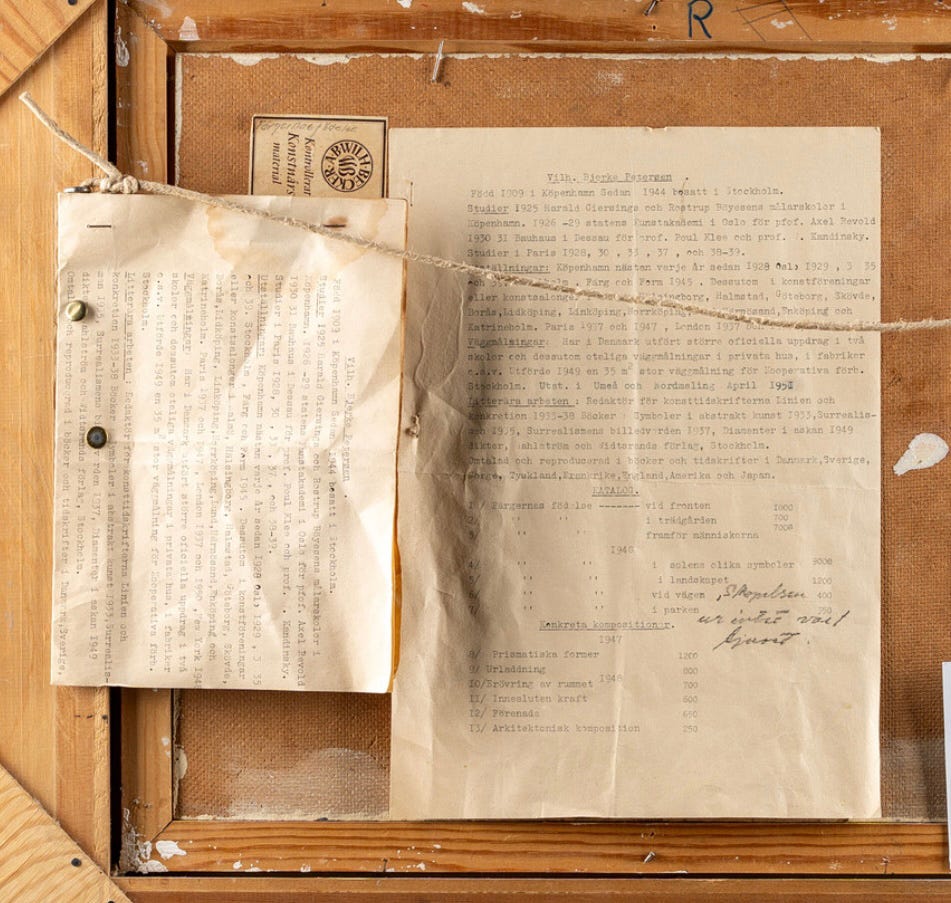 R
Färgernas födelse
Kontrollerat
Konstnärs
material
A.B. WILH. BECKER
Vilh. Bjerke Petersen
Född 1909 i Köpenhamn Sedan 1944 bosatt i Stockholm.
Studier 1925 Harald Giersings och Rostrup Böyesens målarskolor i
Köpenhamn. 1926 -29 statens Kunstakademi i Oslo för pfof. Axel Revold
1930 31 Bauhaus i Dessau för prof. Poul Klee och prof. . Kandinsky.
Studier i Paris 1928, 30 , 33 , 37 , och 38-39.
Utställningar: Köpenhamn nästan verje år sedan 1928 Oslo 1929 , 3 35
och 39. Färg och Form 1945 . Dessutom i konstföreningar
eller konstsalonger i Hälsingborg, Halmstad, Göteborg, Skövde,
Borås,Lidköping, Linköping,Norrköping, Enköping och
Katrineholm. Paris 1937 och 1947 , London 1937
Väggmålningar: Har i Danmark utfört större oficiella uppdrag i två
skolor och dessutom oteliga väggmålningar i privata hus, i fabriker
o.s.v. Utförde 1949 en 35 m² stor väggmålning för Kooperativa förb.
Stockholm. Utst. i Umeå och Nordmaling April 1951
Litterära arbeten : Redaktör för konsttidskrifterna Linien och
Konkretion 1933-38 Böcker : Symboler i abstrakt kunst 1933,Surrealis-
men 1935, Surrealismens billedverden 1937, Diamanter i askan 1949
dikter, Wahlström och Widstrands förlag, Stockholm.
Omtalad och reproducerad i böcker och tidskrifter i Danmark,Sverige,
Norge, Tyskland,Frankrike,England,Amerika och Japan.
KATALOG.
1/ Färgernas födelse ------- vid fronten 1000
2/ " " i trädgården 700
3/ " " framför människorna 700
1948
4/ " " i solens olika symboler 3000
5/ " " i landskapet 1200
6/ " " vid vägen 400
7/ " " i parken 350
ur intet vart
ljuset.
Konkreta kompositioner.
1947
8/ Prismatiska former 1200
9/ Urladdning 800
1948
10/Erövring av rummet 700
11/ Innesluten kraft 600
12/ Förenade 650
13/ Arkitektonisk komposition 250
Vilh. Bjerke Petersen
Född 1909 i Köpenhamn Sedan 1944 bosatt i Stockholm.
Studier 1925 Harald Giersings och Rostrup Böyesens målarskolor i
Köpenhamn. 1926 -29 statens Kunstakademi i Oslo för pfof. Axel Revold
1930 31 Bauhaus i Dessau för prof. Poul Klee och prof. . Kandinsky.
Studier i Paris 1928, 30 , 33 , 37 , och 38-39.
Utställningar: Köpenhamn nästan verje år sedan 1928 Oslo 1929 , 3 35
och 39, Färg och Form 1945 . Dessutom i konstföreningar
eller konstsalonger i Malmö, Hälsingborg, Halmstad, Göteborg, Skövde,
Borås,Lidköping, Linköping,Norrköping,Lund,Härnösand,Enköping och
Katrineholm. Paris 1937 och 1947, London 1937 och 1950 ,New York 1948
Väggmålningar: Har i Danmark utfört större oficiella uppdrag i två
skolor och dessutom oteliga väggmålningar i privata hus, i fabriker
o.s.v. Utförde 1949 en 35 m² stor väggmålning för Kooperativa förb.
Stockholm.
Litterära arbeten : Redaktör för konsttidskrifterna Linien och
Konkretion 1933-38 Böcker : Symboler i abstrakt kunst 1933,Surrealis-
men 1935, Surrealismens 1937, Diamanter i askan 1949
dikter, Wahlström och Widstrands förlag, Stockholm.
Omtalad och reproducerad i böcker och tidskrifter i Danmark,Sverige,